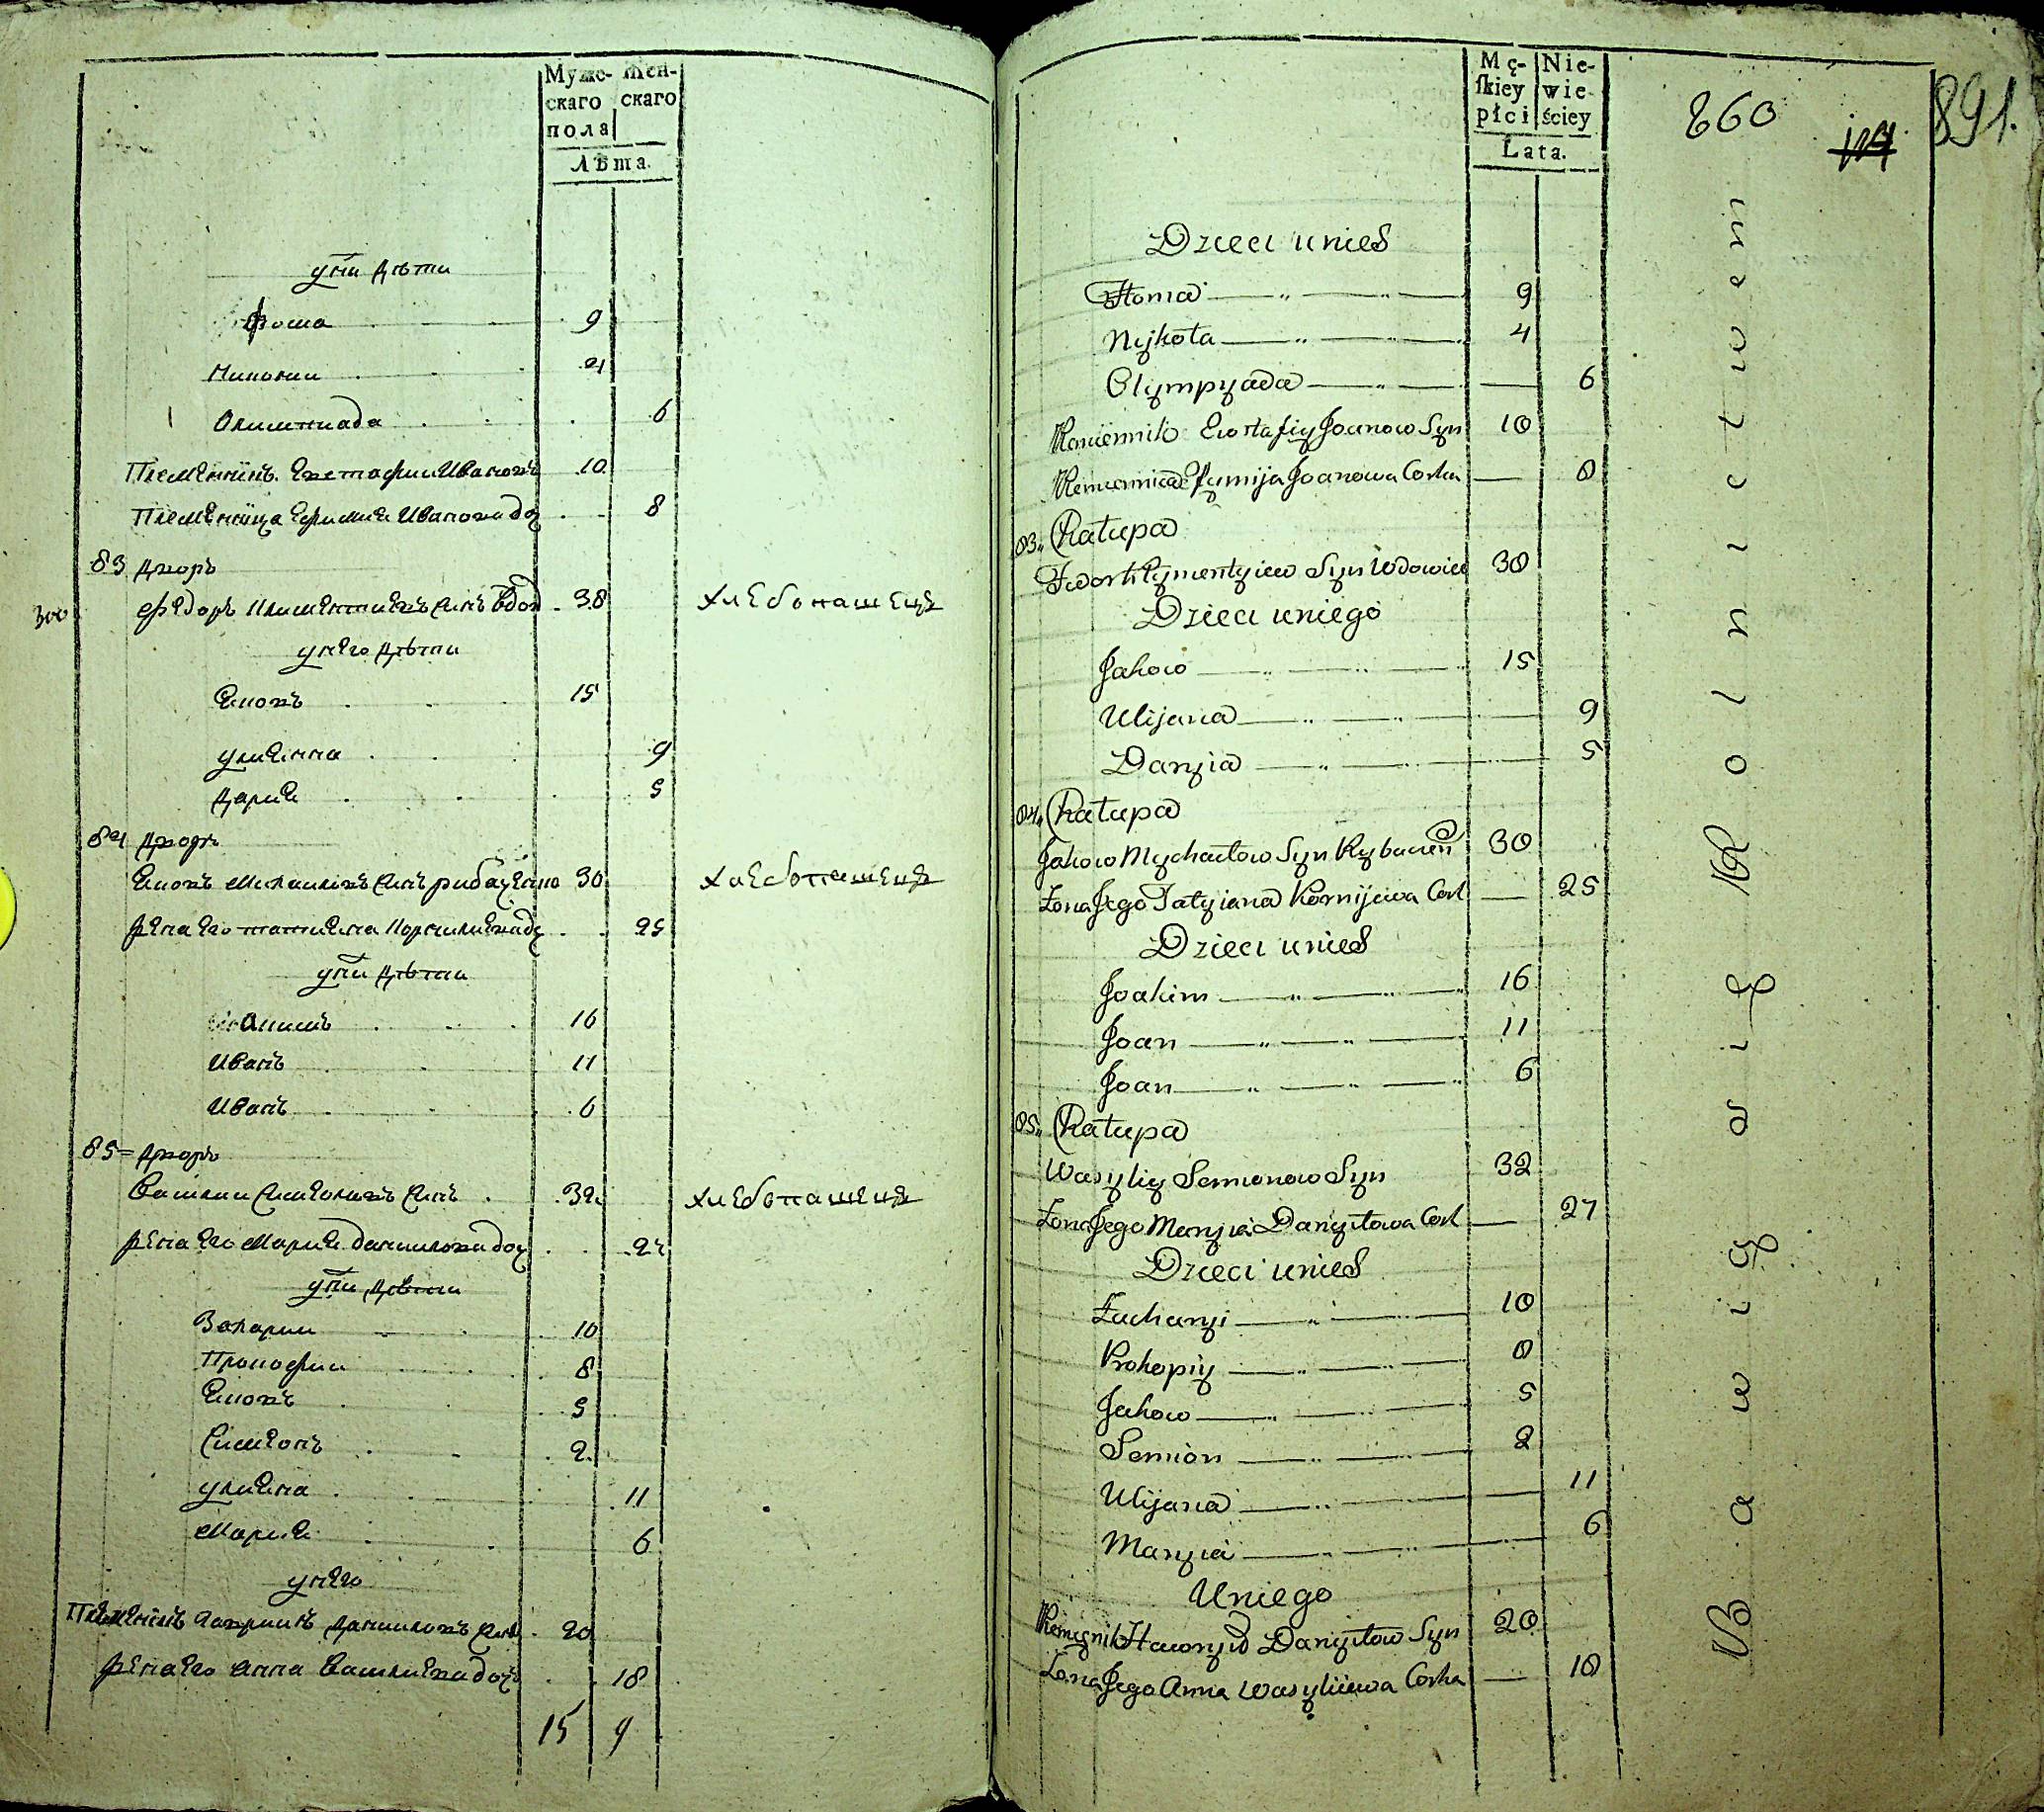 Муже- Жен-
скаго скаго
пола
Лѣта.
уни дѣти
Фома 9
Никонии 4
Олимпиада 6
Племѣнникъ Евстафии Ивановъ 10
Племѣнница Ефимия Иванова доч 8
83 дворъ
300 Федоръ Климентиевъ синъ вдов 38 хлебопашецъ
унего дѣти
Яковъ 15
улиянна 9
Дария 5
84 дворъ
Яковъ Михаиловъ синъ рибаченко 30 хлебопашецъ
жена его татияна Корнилиева доч 25
уни дѣти
Иоакимъ 16
Иванъ 11
Иванъ 6
85 дворъ
Василии Симеоновъ синъ 32 хлебопашецъ
жена его Мария данилова доч 27
уни дѣти
Захарии 10
Прокофии 8
Яковъ 5
Симеонъ 2
улияна 11
Мария 6
унего
Племѣнникъ Гавриилъ Даниловъ синъ 20
жена его Анна Василиева дочъ 18
15 9
Mę- Nie-
ſkiey wie
płci ściey
Lata.
860
114
891.
Dzieci unieŏ
Homa 9
Nykoła 4
Olympyada 6
Plemiennik Ewstafiy Joanow Syn 10
Plemiennica Efymija Joanowa Corka 8
83 Chałupa
Fedor Klymentyiew Syn Wdowiec 38
Dzieci uniego
Jakow 15
Ulijana 9
Daryia 5
84 Chałupa
Jakow Mychałow Syn Rybaczen 30
Żona Jego Tatyiana Kornijewa Cork 25
Dzieci unieŏ
Joakim 16
Joan 11
Joan 6
85 Chałupa
Wasyliy Semionow Syn 32
Żona Jego Maryia Danyłowa Cork 27
Dzieci unieŏ
Zacharyi 10
Prokopiy 8
Jakow 5
Semion 2
Ulijana 11
Maryia 6
Uniego
Plemęnik Hawryło Danyłow Syn 20
Żona Jego Anna Wasyliiewa Corka 18
Bawią się Rolnictwem